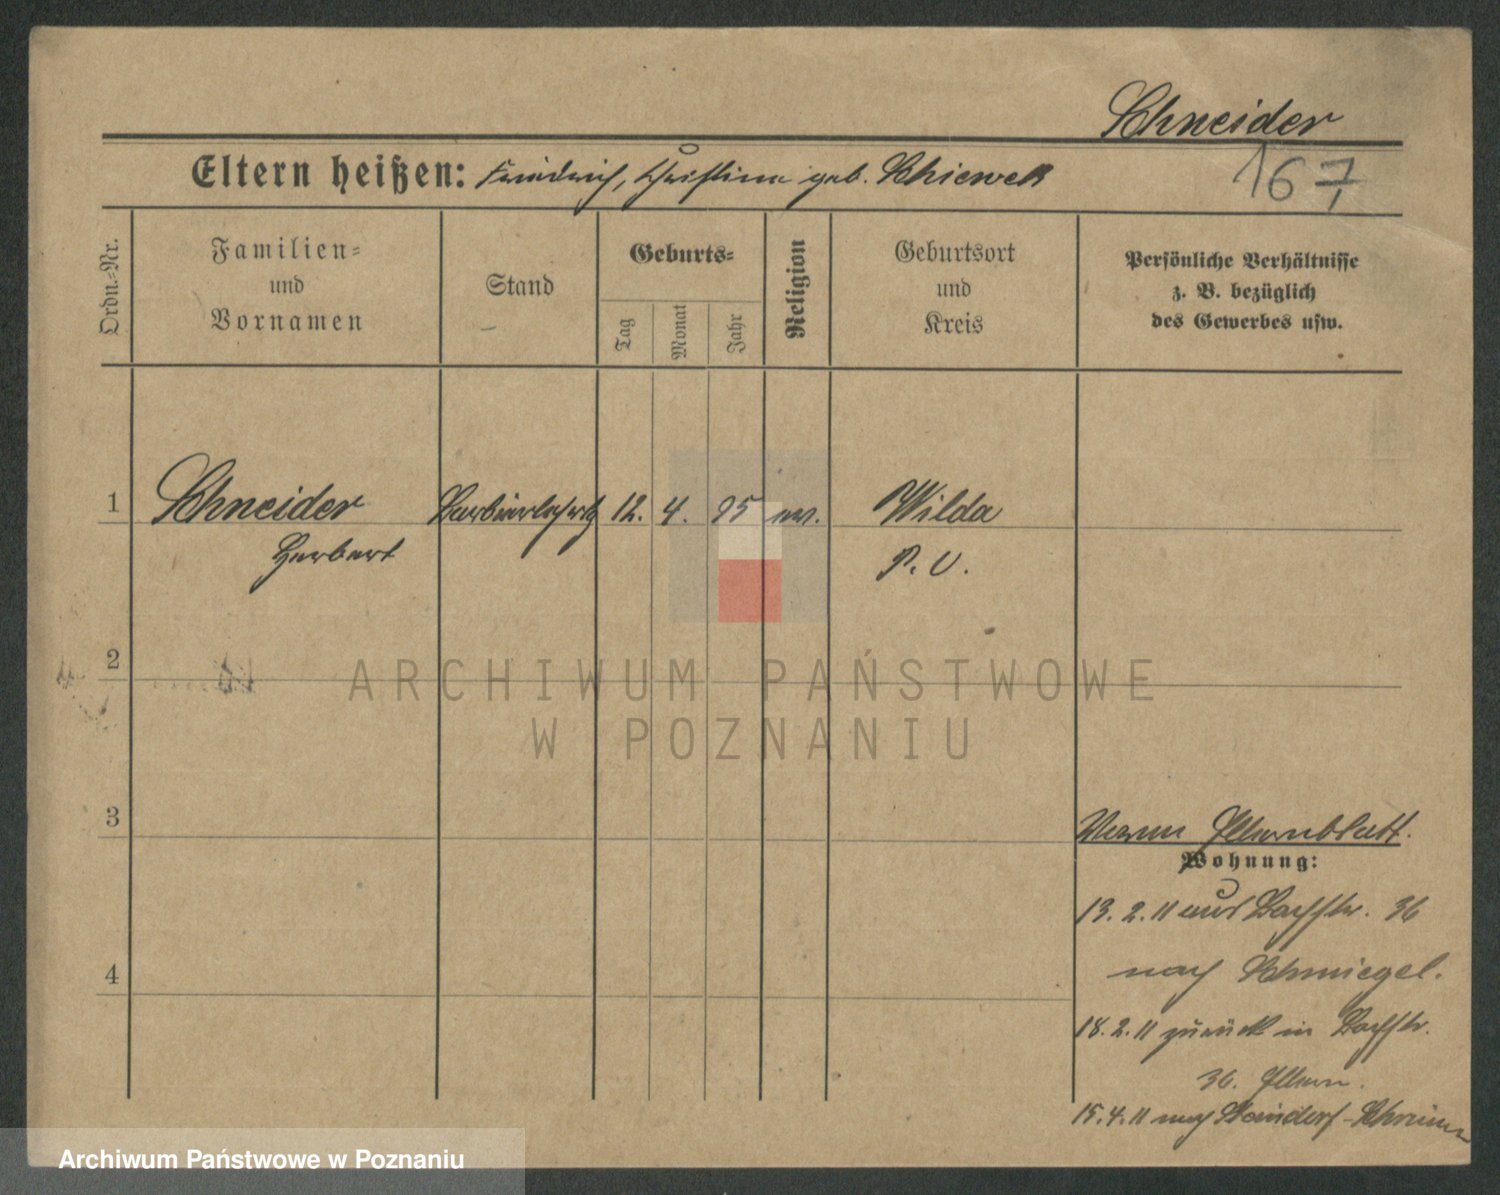 Schneider
167
Eltern heißen: Friedrich, Christine geb. Schiewek
Ordn.-Nr.
Familien-
und
Vornamen
Stand
Geburts-
Tag
Monat
Jahr
Religion
Geburtsort
und
Kreis
Persönliche Verhältnisse
z. B. bezüglich
des Gewerbes usw.
1 Schneider Barbierlehrlg 12. 4. 95 ev. Wilda
Herbert P. O.
2
3
Elternblatt.
Wohnung:
13. 2. 11 aus Bachstr. 36
4
nach Schmiegel.
18. 2. 11 zurück in Bachstr.
36. Eltern.
15. 4. 11 nach
ARCHIWUM PAŃSTWOWE
W POZNANIU
Archiwum Państwowe w Poznaniu